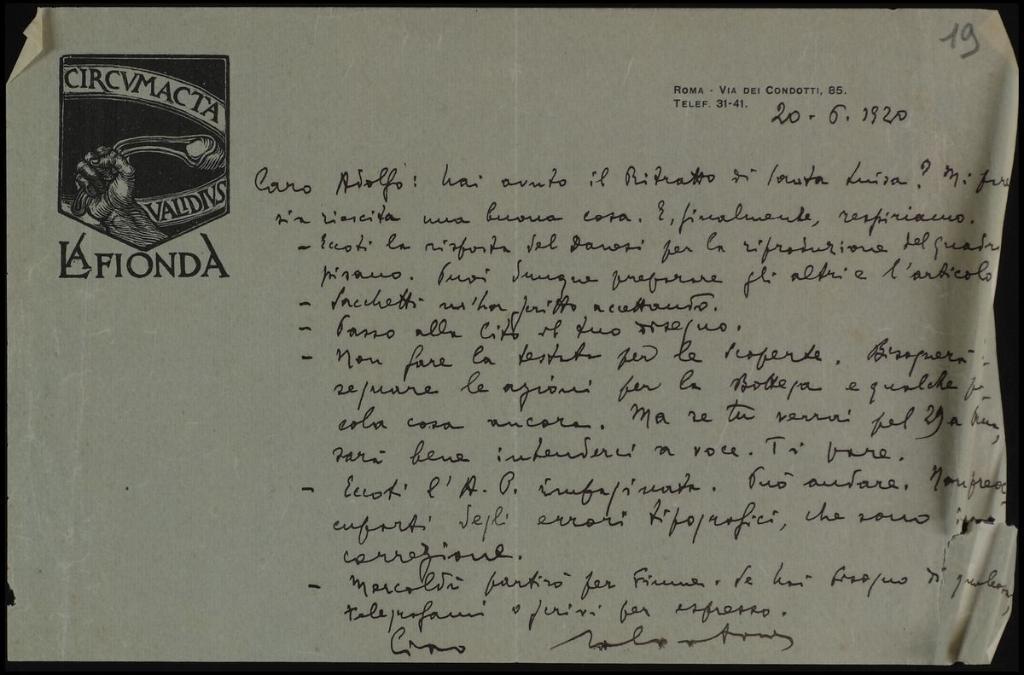 19
CIRCVMACTA
VALIDIVS
LA FIONDA
ROMA - VIA DEI CONDOTTI, 85.
TELEF. 31-41.
20-6.1920
Caro Adolfo: hai avuto il Ritratto di Santa Luisa? Mi pare
sia riescita una buona cosa. E, finalmente, respiriamo.
- Eccoti la risposta del Danesi per la riproduzione del quadro
pisano. Puoi dunque preparare gli altri e l'articolo
- Sacchetti m'ha scritto accettando.
- Passo alla Cito il tuo disegno.
- Non fare la testata per le Scoperte. Bisognerà
segnare le azioni per la Bottega e qualche pic
cola cosa ancora. Ma se tu verrai pel 29 a
sarà bene intenderci a voce. Ti pare.
- Eccoti l'A. P. impaginata. Può andare. Non preoc
cuparti degli errori tipografici, che sono in
correzione.
- Mercoldì partirò per Fiume. Se hai bisogno di qualcosa,
telegrafami o scrivi per espresso.
Ciao